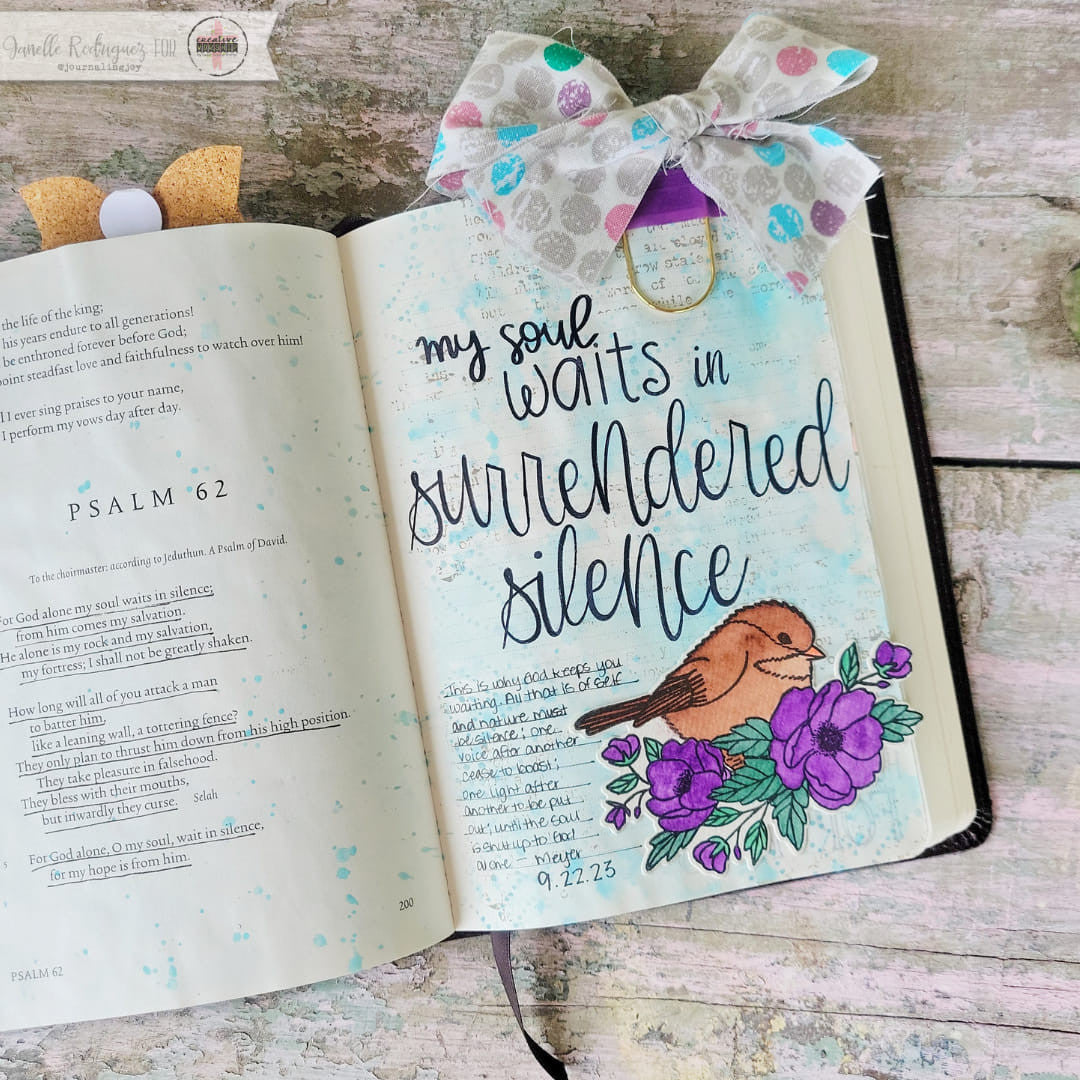 Janelle Rodriguez FOR
creative
WORSHIP
@journalingjoy
the life of the king;
his years endure to all generations!
be enthroned forever before God;
point steadfast love and faithfulness to watch over him!
I ever sing praises to your name,
I perform my vows day after day.
PSALM 62
To the choirmaster: according to Jeduthun. A Psalm of David.
For God alone my soul waits in silence;
from him comes my salvation.
He alone is my rock and my salvation,
my fortress; I shall not be greatly shaken.
How long will all of you attack a man
to batter him,
like a leaning wall, a tottering fence?
They only plan to thrust him down from his high position.
They take pleasure in falsehood.
They bless with their mouths,
but inwardly they curse. Selah
5 For God alone, O my soul, wait in silence,
for my hope is from him.
200
PSALM 62
my soul
waits in
surrendered
silence
This is why God keeps you
waiting. All that is of self
and nature must
be silence; one
voice after another
cease to boast;
one light after
another to be put
out; until the soul
is shut up to God
alone - Meyer
9.22.23